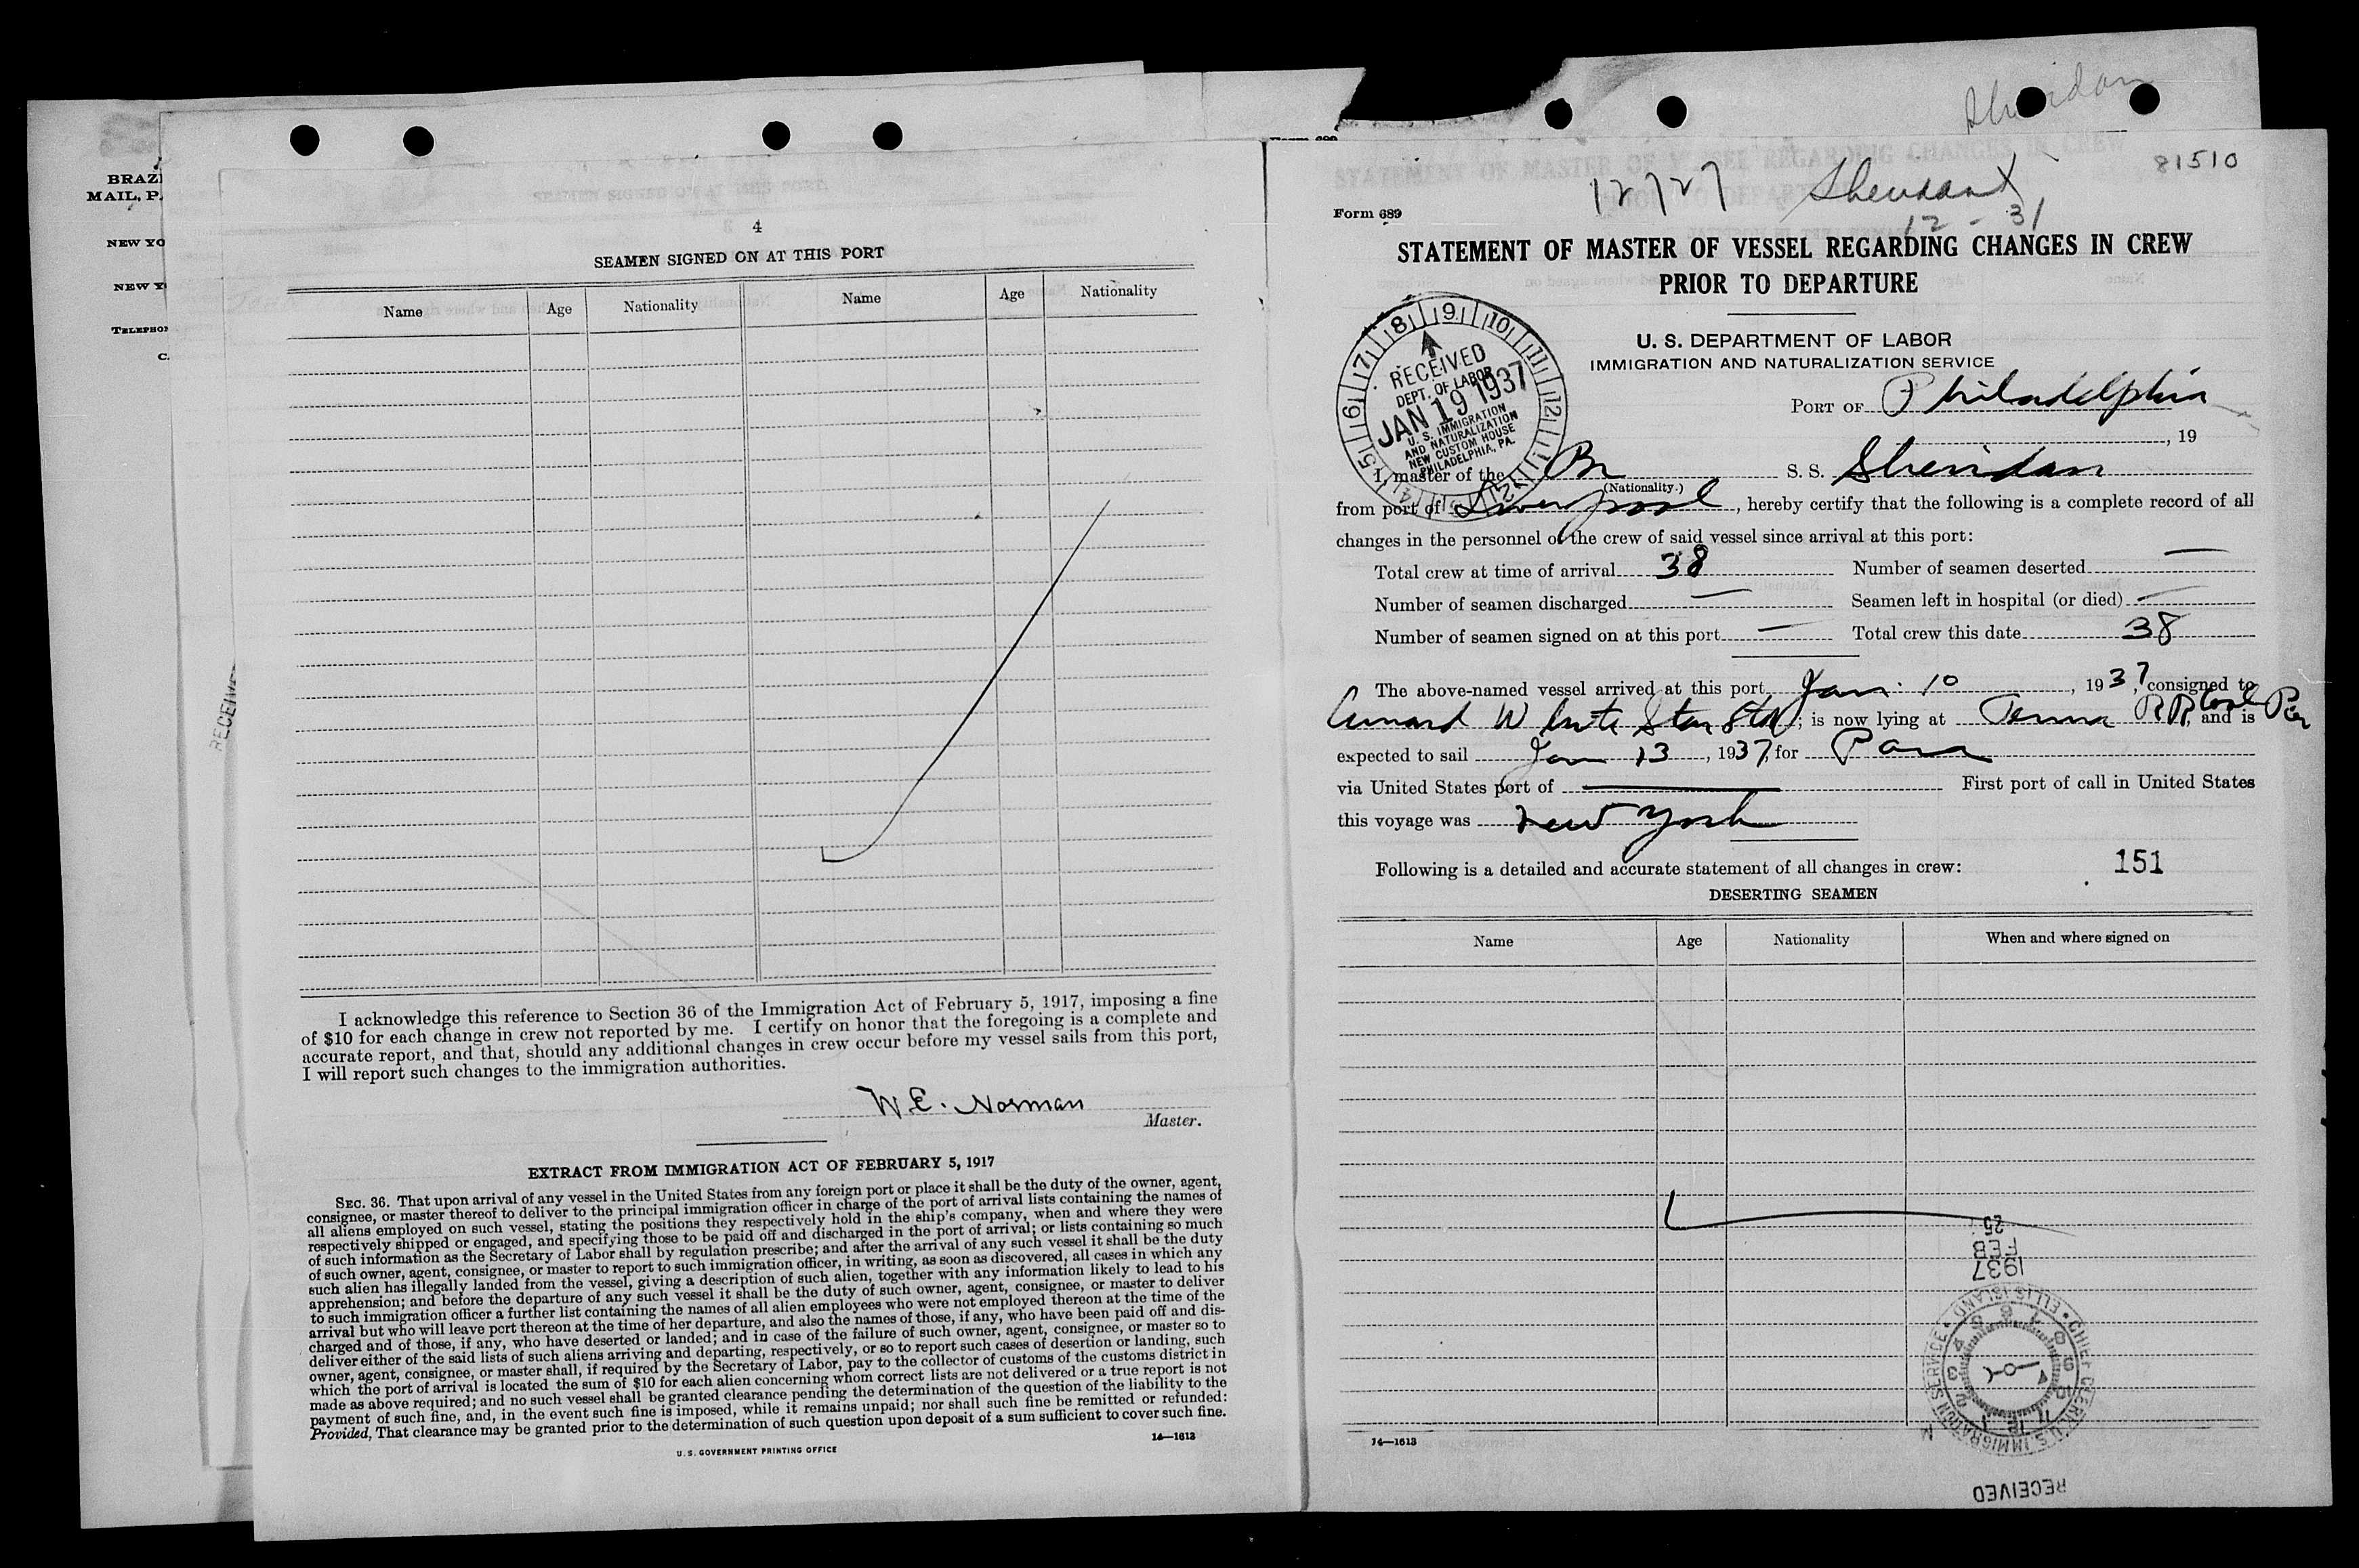 BRAZI
MAIL, P
NEW YO
NEW Y
TELEPHO
C.
RECEIVE
4
SEAMEN SIGNED ON AT THIS PORT
Name Age Nationality Name Age Nationality
I acknowledge this reference to Section 36 of the Immigration Act of February 5, 1917, imposing a fine
of $10 for each change in crew not reported by me. I certify on honor that the foregoing is a complete and
accurate report, and that, should any additional changes in crew occur before my vessel sails from this port,
I will report such changes to the immigration authorities.
W. E. Norman
Master.
EXTRACT FROM IMMIGRATION ACT OF FEBRUARY 5, 1917
SEC. 36. That upon arrival of any vessel in the United States from any foreign port or place it shall be the duty of the owner, agent,
consignee, or master thereof to deliver to the principal immigration officer in charge of the port of arrival lists containing the names of
all aliens employed on such vessel, stating the positions they respectively hold in the ship's company, when and where they were
respectively shipped or engaged, and specifying those to be paid off and discharged in the port of arrival; or lists containing so much
of such information as the Secretary of Labor shall by regulation prescribe; and after the arrival of any such vessel it shall be the duty
of such owner, agent, consignee, or master to report to such immigration officer, in writing, as soon as discovered, all cases in which any
such alien has illegally landed from the vessel, giving a description of such alien, together with any information likely to lead to his
apprehension; and before the departure of any such vessel it shall be the duty of such owner, agent, consignee, or master to deliver
to such immigration officer a further list containing the names of all alien employees who were not employed thereon at the time of the
arrival but who will leave port thereon at the time of her departure, and also the names of those, if any, who have been paid off and dis-
charged and of those, if any, who have deserted or landed; and in case of the failure of such owner, agent, consignee, or master so to
deliver either of the said lists of such aliens arriving and departing, respectively, or so to report such cases of desertion or landing, such
owner, agent, consignee, or master shall, if required by the Secretary of Labor, pay to the collector of customs of the customs district in
which the port of arrival is located the sum of $10 for each alien concerning whom correct lists are not delivered or a true report is not
made as above required; and no such vessel shall be granted clearance pending the determination of the question of the liability to the
payment of such fine, and, in the event such fine is imposed, while it remains unpaid; nor shall such fine be remitted or refunded:
Provided, That clearance may be granted prior to the determination of such question upon deposit of a sum sufficient to cover such fine.
U. S. GOVERNMENT PRINTING OFFICE
14—1613
Sheridan
12727 Sheridan 81510
12 - 31
Form 689
STATEMENT OF MASTER OF VESSEL REGARDING CHANGES IN CREW
PRIOR TO DEPARTURE
U. S. DEPARTMENT OF LABOR
IMMIGRATION AND NATURALIZATION SERVICE
RECEIVED
DEPT. OF LABOR
JAN 19 1937
U. S. IMMIGRATION
AND NATURALIZATION
NEW CUSTOM HOUSE
PHILADELPHIA, PA.
PORT OF Philadelphia
, 19
I, master of the Br S. S. Sheridan
(Nationality.)
from port of Liverpool, hereby certify that the following is a complete record of all
changes in the personnel of the crew of said vessel since arrival at this port:
Total crew at time of arrival 38 Number of seamen deserted —
Number of seamen discharged — Seamen left in hospital (or died) —
Number of seamen signed on at this port — Total crew this date 38
The above-named vessel arrived at this port Jan. 10, 1937, consigned to
Cunard White Star Ltd; is now lying at Penna RR Coal Pier, and is
expected to sail Jan 13, 1937, for Para
via United States port of — First port of call in United States
this voyage was New York
Following is a detailed and accurate statement of all changes in crew: 151
DESERTING SEAMEN
Name Age Nationality When and where signed on
25
FEB
1937
CHIEF CLERK U.S. IMMIGRATION SERVICE • ELLIS ISLAND •
M
RECEIVED
14—1613